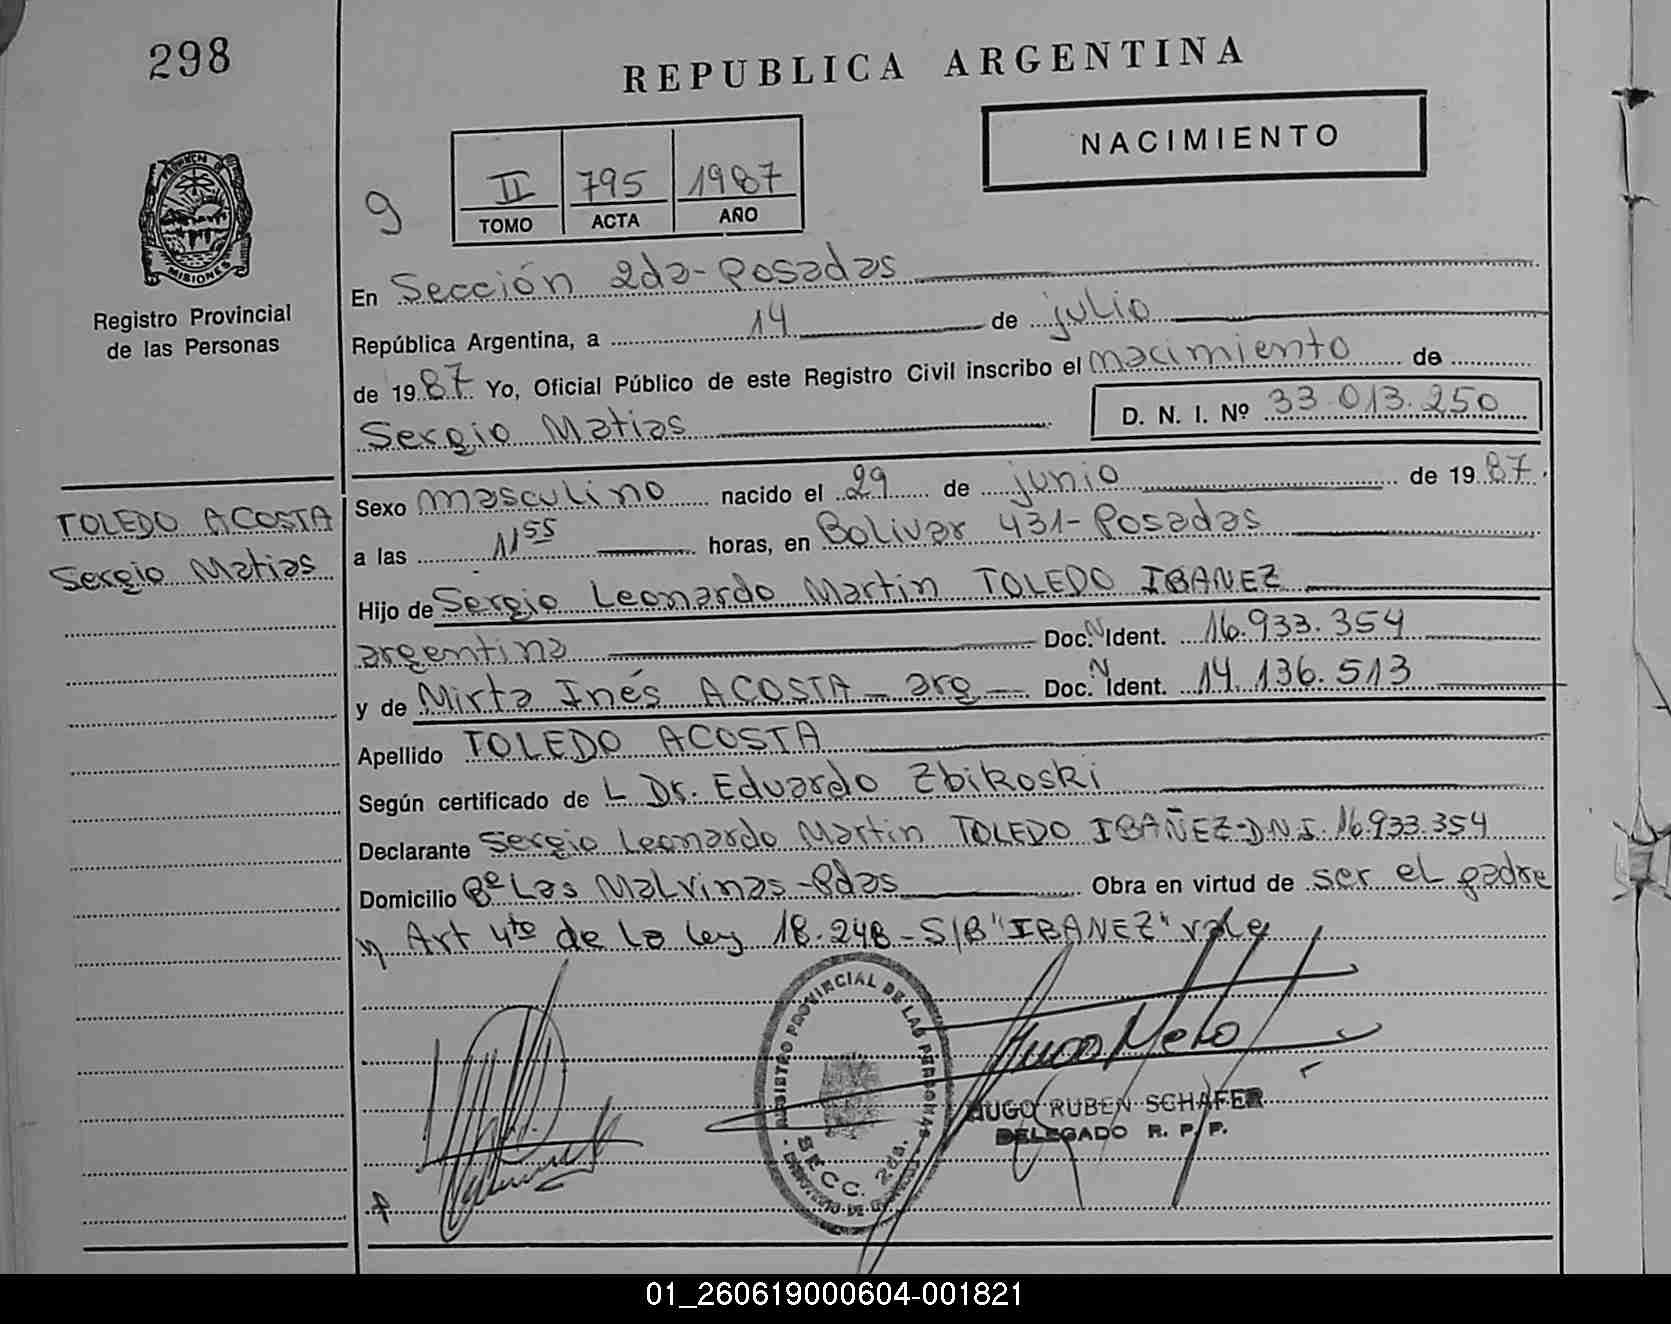 298
REPUBLICA ARGENTINA
NACIMIENTO
9
II 795 1987
TOMO ACTA AÑO
PROVINCIA DE
MISIONES
Registro Provincial
de las Personas
En Sección 2da-Posadas
República Argentina, a 14 de julio
de 1987 Yo, Oficial Público de este Registro Civil inscribo el nacimiento de
Sergio Matias
D. N. I. Nº 33.013.250
TOLEDO ACOSTA
Sergio Matias
Sexo masculino nacido el 29 de junio de 1987.
a las 11 55 horas, en Bolivar 431-Posadas
Hijo de Sergio Leonardo Martin TOLEDO IBANEZ
argentina Doc. N Ident. 16.933.354
y de Mirta Inés ACOSTA - arg - Doc. N Ident. 14.136.513
Apellido TOLEDO ACOSTA
Según certificado de L Dr. Eduardo Zbikoski
Declarante Sergio Leonardo Martin TOLEDO IBAÑEZ-D.N.I. 16.933.354
Domicilio Bº Las Malvinas-Pdas Obra en virtud de ser el padre
y Art 4to de la ley 18.248-S/B "IBANEZ" vale
REGISTRO PROVINCIAL DE LAS PERSONAS
SECC. 2da.
HUGO RUBEN SCHAFER
DELEGADO R. P. P.
01_260619000604-001821